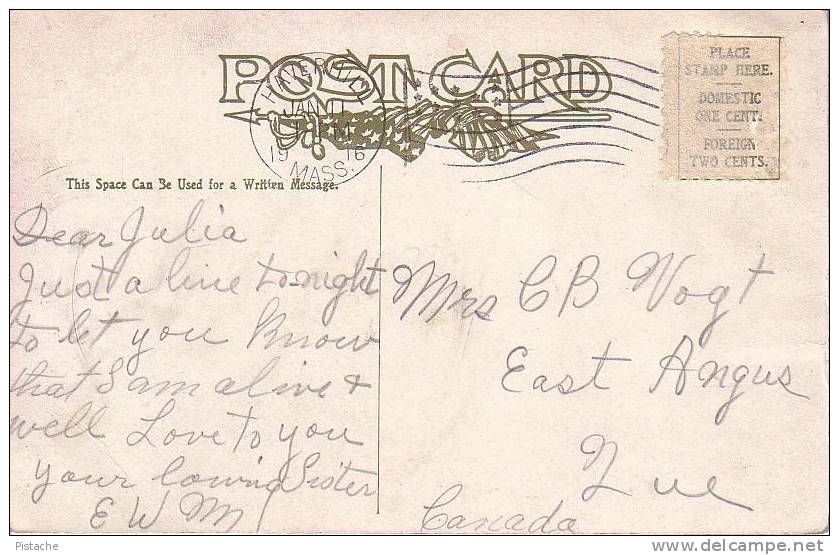 POST CARD
HAVERHILL
JAN 11
M
19 16
MASS.
PLACE
STAMP HERE.
DOMESTIC
ONE CENT.
FOREIGN
TWO CENTS.
This Space Can Be Used for a Written Message.
Dear Julia
Just a line to-night
to let you know
that I am alive &
well Love to you
your loving Sister
E W M
Mrs C B Vogt
East Angus
Que
Canada
Pistache
www.delcampe.net